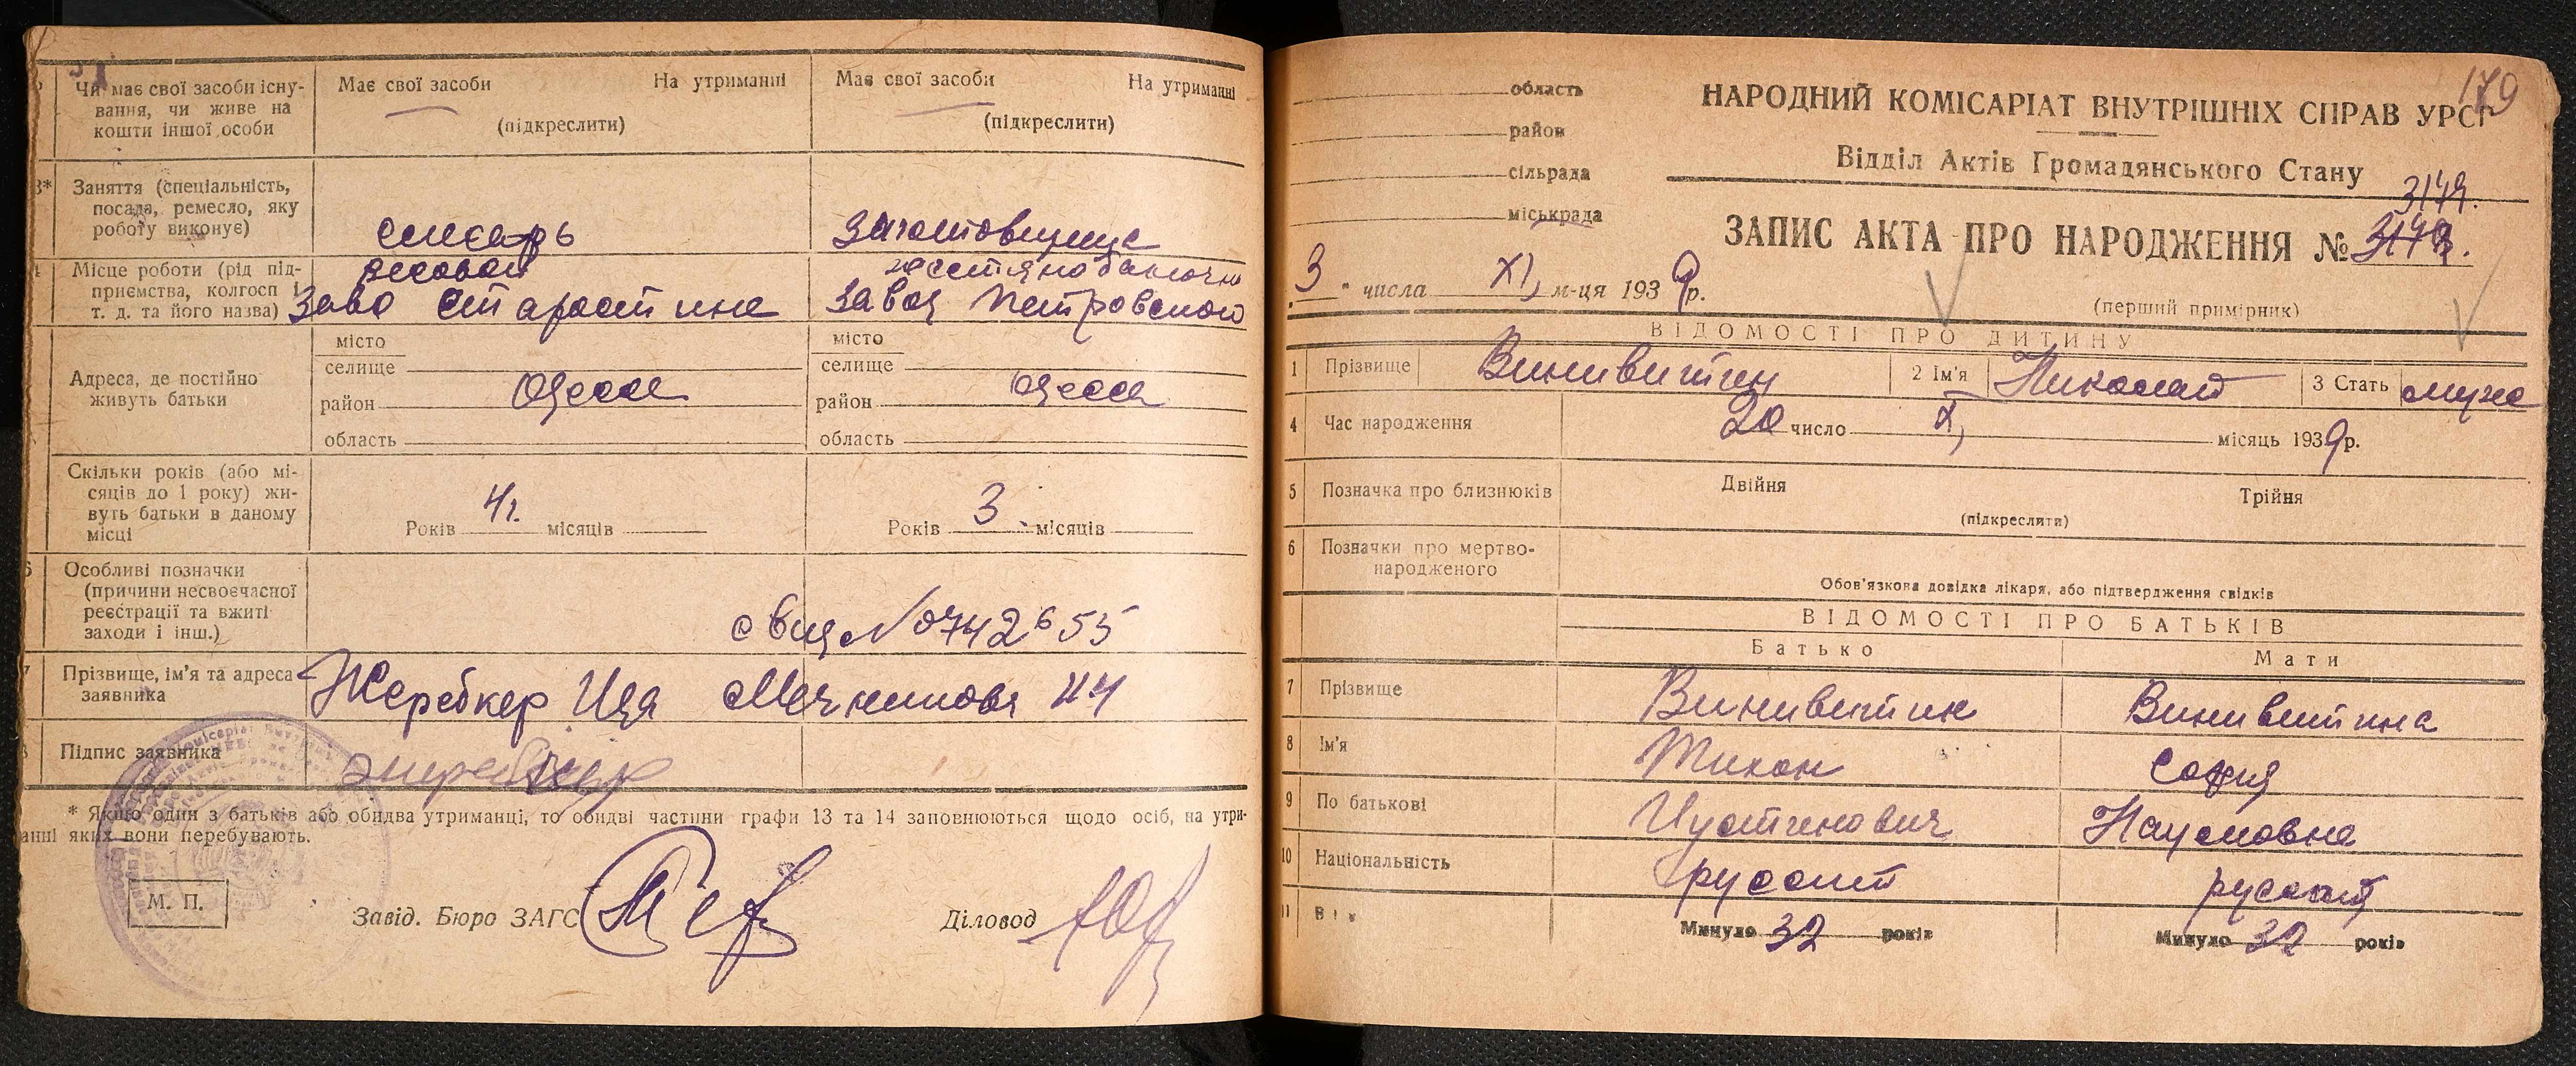 Чи має свої засоби існу-
вання, чи живе на
кошти іншої особи
Має свої засоби На утриманні
(підкреслити)
Має свої засоби На утриманні
(підкреслити)
Заняття (спеціальність,
посада, ремесло, яку
роботу виконує)
слесарь
Заготовщица
Місце роботи (рід під-
приємства, колгосп і
т. д. та його назва)
Заво Старостина
жестянобаночн
завод Петровского
Адреса, де постійно
живуть батьки
місто
селище
район Одесса
область
місто
селище
район Одесса
область
Скільки років (або мі-
сяців до 1 року) жи-
вуть батьки в даному
місці
Років 4г. місяців
Років 3 місяців
Особливі позначки
(причини несвоєчасної
реєстрації та вжиті
заходи і інш.)
свид № 0742655
Прізвище, ім'я та адреса
заявника
Жеребкер Ида Мечникова 44
Підпис заявника
Жеребкер
* Якщо один з батьків або обидва утриманці, то обидві частини графи 13 та 14 заповнюються щодо осіб, на утри-
анні яких вони перебувають.
М. П.
Завід. Бюро ЗАГС
Діловод
179
область
район
сільрада
міськрада
НАРОДНИЙ КОМІСАРІАТ ВНУТРІШНІХ СПРАВ УРСР
Відділ Актів Громадянського Стану
3149.
ЗАПИС АКТА ПРО НАРОДЖЕННЯ №
3 " числа XI, м-ця 1939р.
(перший примірник)
ВІДОМОСТІ ПРО ДИТИНУ
1 Прізвище Виневитин 2 Ім'я Николай 3 Стать муже
4 Час народження 20 число X, місяць 1939р.
5 Позначка про близнюків Двійня Трійня
(підкреслити)
6 Позначки про мертво-
народженого
Обов'язкова довідка лікаря, або підтвердження свідків
ВІДОМОСТІ ПРО БАТЬКІВ
Батько Мати
7 Прізвище Виневитин Виневитина
8 Ім'я Тихон София
9 По батькові Иустинович Наумовна
10 Національність русский русский
11 Вік Минуло 32 років Минуло 32 років